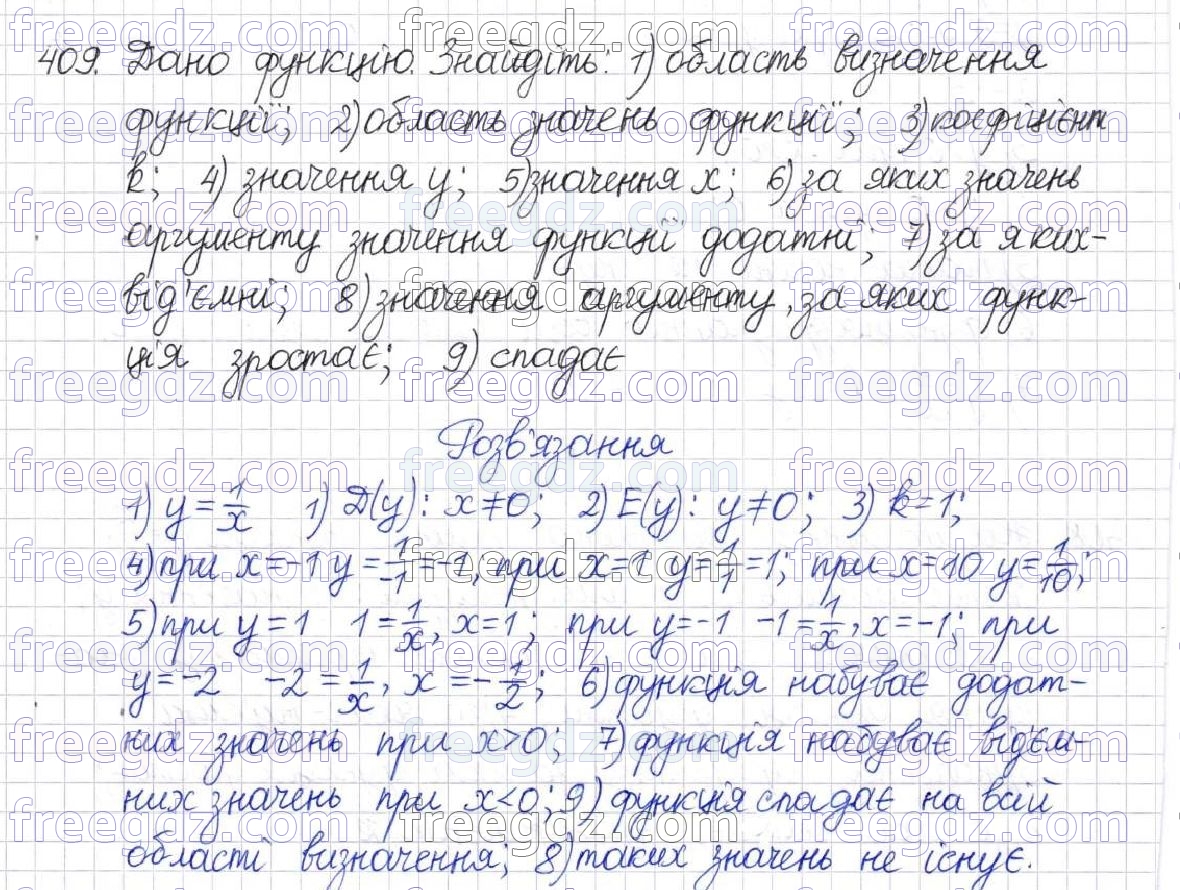 409. Дано функцію. Знайдіть: 1) область визначення
функції; 2) область значень функції; 3) коефіцієнт
k; 4) значення y; 5) значення x; 6) за яких значень
аргументу значення функції додатні; 7) за яких-
від'ємні; 8) значення аргументу, за яких функ-
ція зростає; 9) спадає
Розв'язання
1) y = 1/x 1) D(y): x ≠ 0; 2) E(y): y ≠ 0; 3) k = 1;
4) при x = -1 y = 1/-1 = -1, при x = 1 y = 1/1 = 1; при x = 10 y = 1/10;
5) при y = 1 1 = 1/x, x = 1; при y = -1 -1 = 1/x, x = -1; при
y = -2 -2 = 1/x, x = -1/2; 6) функція набуває додат-
них значень при x > 0; 7) функція набуває від'єм-
них значень при x < 0; 9) функція спадає на всій
області визначення; 8) таких значень не існує.
freegdz.com